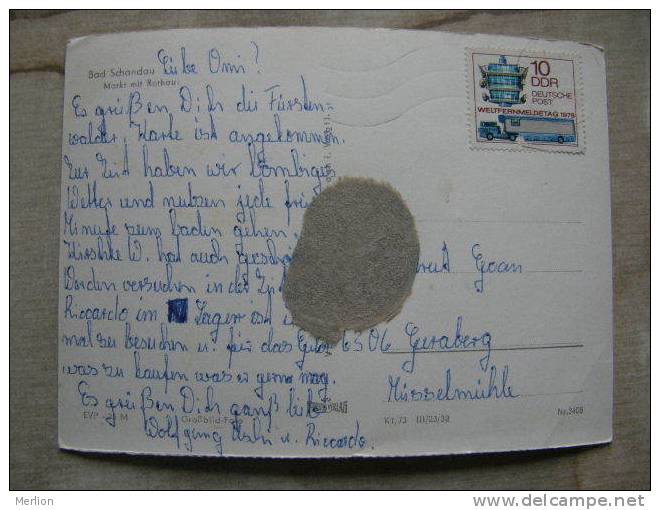 Bad Schandau
Markt mit Rathaus
Liebe Omi!
Es grüßen Dich die Fürsten-
walder, Karte ist angekommen.
Zur Zeit haben wir bombiges
Wetter und nutzen jede freie
Minute zum baden gehen.
W. hat auch
Werden versuchen in der
Riccardo im Lager ist
mal zu besuchen u. für das Geld
was zu kaufen was er gerne mag.
Es grüßen Dich ganz lieb
Wolfgang u. Riccardo.
10
DDR
DEUTSCHE
POST
WELTFERNMELDETAG 1979
Goan
6306 Geraberg
Müsselmühle
EVP M
Großbild-Foto
VERLAG
K1/73 III/23/39
No. 3406
Merlion
www.delcampe.net